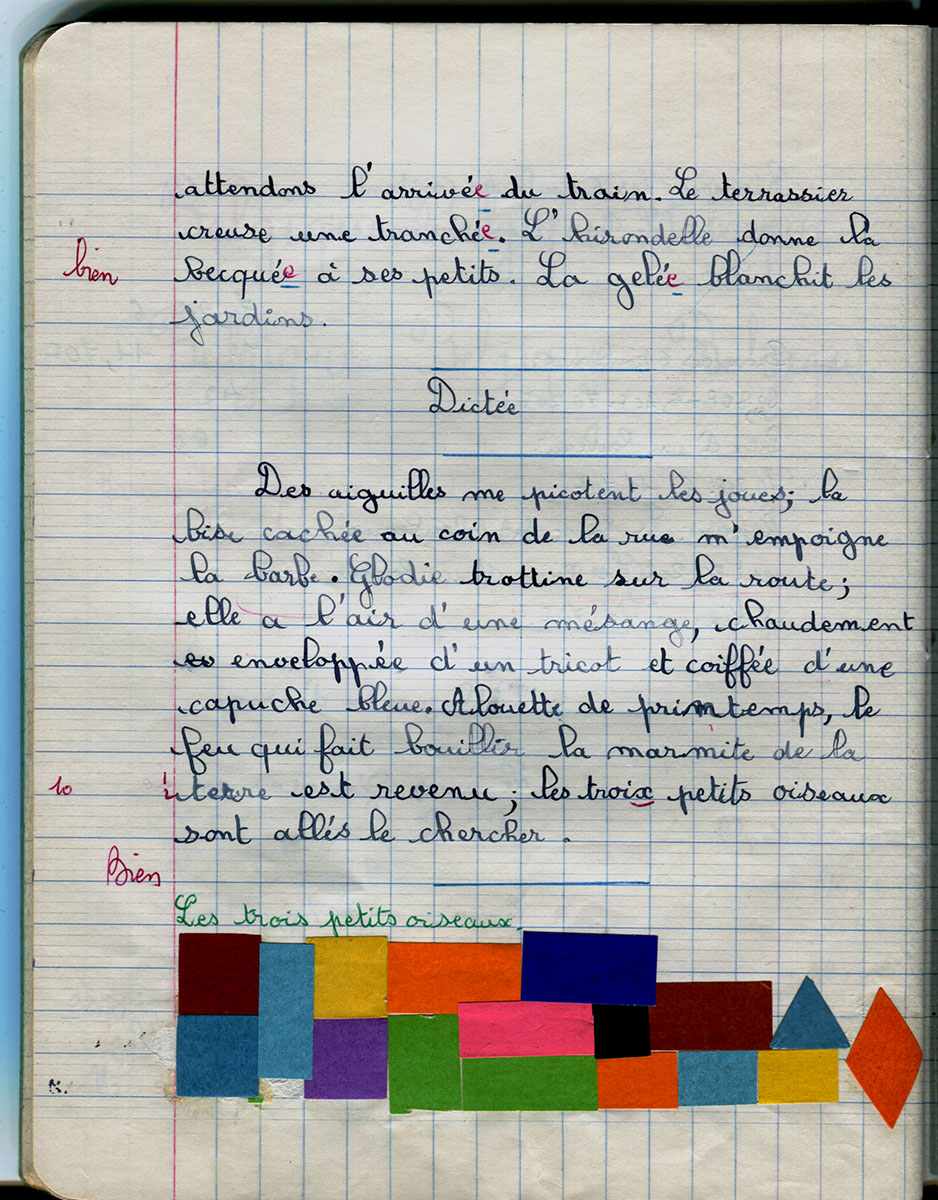 attendons l'arrivée du train. Le terrassier
creuse une tranchée. L'hirondelle donne la
bien
becquée à ses petits. La gelée blanchit les
jardins.
Dictée
Des aiguilles me picotent les joues; la
bise cachée au coin de la rue m'empoigne
la barbe. Elodie trottine sur la route;
elle a l'air d'une mésange, chaudement
enveloppée d'un tricot et coiffée d'une
capuche bleue. Alouette de printemps, le
feu qui fait bouillir la marmite de la
10
terre est revenu; les troix petits oiseaux
sont allés le chercher.
Bien
Les trois petits oiseaux.